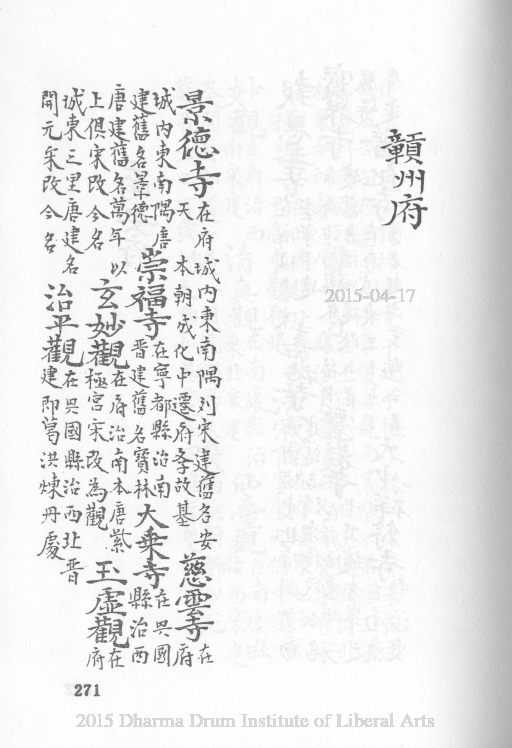 贛州府
景德寺在府城内東南隅刘宋建舊名安天 本朝成化中遷府學故基慈雲寺在府
城内東南隅唐建舊名景德崇福寺在寧都縣治南晋建舊名寶林大乗寺在興國縣治西
唐建舊名萬年以上俱宋改今名玄妙觀在府治南本唐紫極宮宋改為觀玉虛觀在府
城東三里唐建名開元宋改今名治平觀在興國縣治西北晋建即葛洪煉丹處
2015-04-17
271
2015 Dharma Drum Institute of Liberal Arts